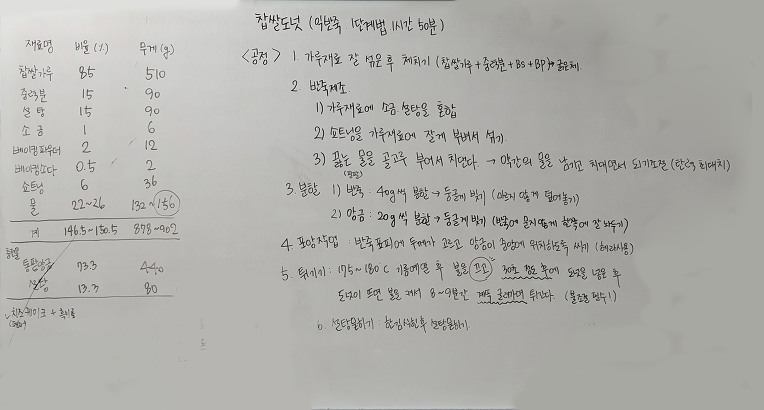 찹쌀도넛 (익반죽 1단계법 1시간 50분)
재료명 비율(%) 무게(g)
찹쌀가루 85 510
중력분 15 90
설탕 15 90
소금 1 6
베이킹파우더 2 12
베이킹소다 0.5 2
쇼트닝 6 36
물 22~26 132~156
계 146.5~150.5 878~902
통팥앙금 73.3 440
설탕 13.3 80
치즈케이크 + 흑미롤
<공정> 1. 가루재료 잘 섞은 후 체치기 (찹쌀가루+중력분+BS+BP)
2. 반죽제조
1) 가루재료에 소금, 설탕을 혼합
2) 쇼트닝을 가루재료에 잘게 부벼서 섞기
3) 끓는 물을 골고루 부어서 치댄다. → 약간의 물을 남기고 치대면서 되기조절
3. 분할 1) 반죽 : 40g씩 분할 → 둥글게 빚기 (마르지 않게 덮어놓기)
2) 앙금 : 20g씩 분할 → 둥글게 빚기 (반죽에 묻지않게 한쪽에 잘 놔두기)
4. 포앙작업 : 반죽표피에 두께가 고르고 앙금이 중앙에 위치하도록 싸기 (헤라사용)
5. 튀기기 : 175~180℃ 기름예열 후 불을 끄고 30초 정도 후에 도넛을 넣은 후
도넛이 뜨면 불을 켜서 8~9분간 계속 굴리며 튀긴다 (불조절 필수!)
6. 설탕묻히기 : 한김식힌후 설탕묻히기